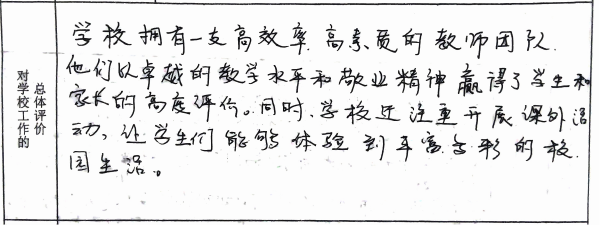 对学校工作的
总体评价
学校拥有一支高效率、高素质的教师团队
他们以卓越的教学水平和敬业精神赢得了学生和
家长的高度评价。同时,学校还注重开展课外活
动,让学生们能够体验到丰富多彩的校
园生活。